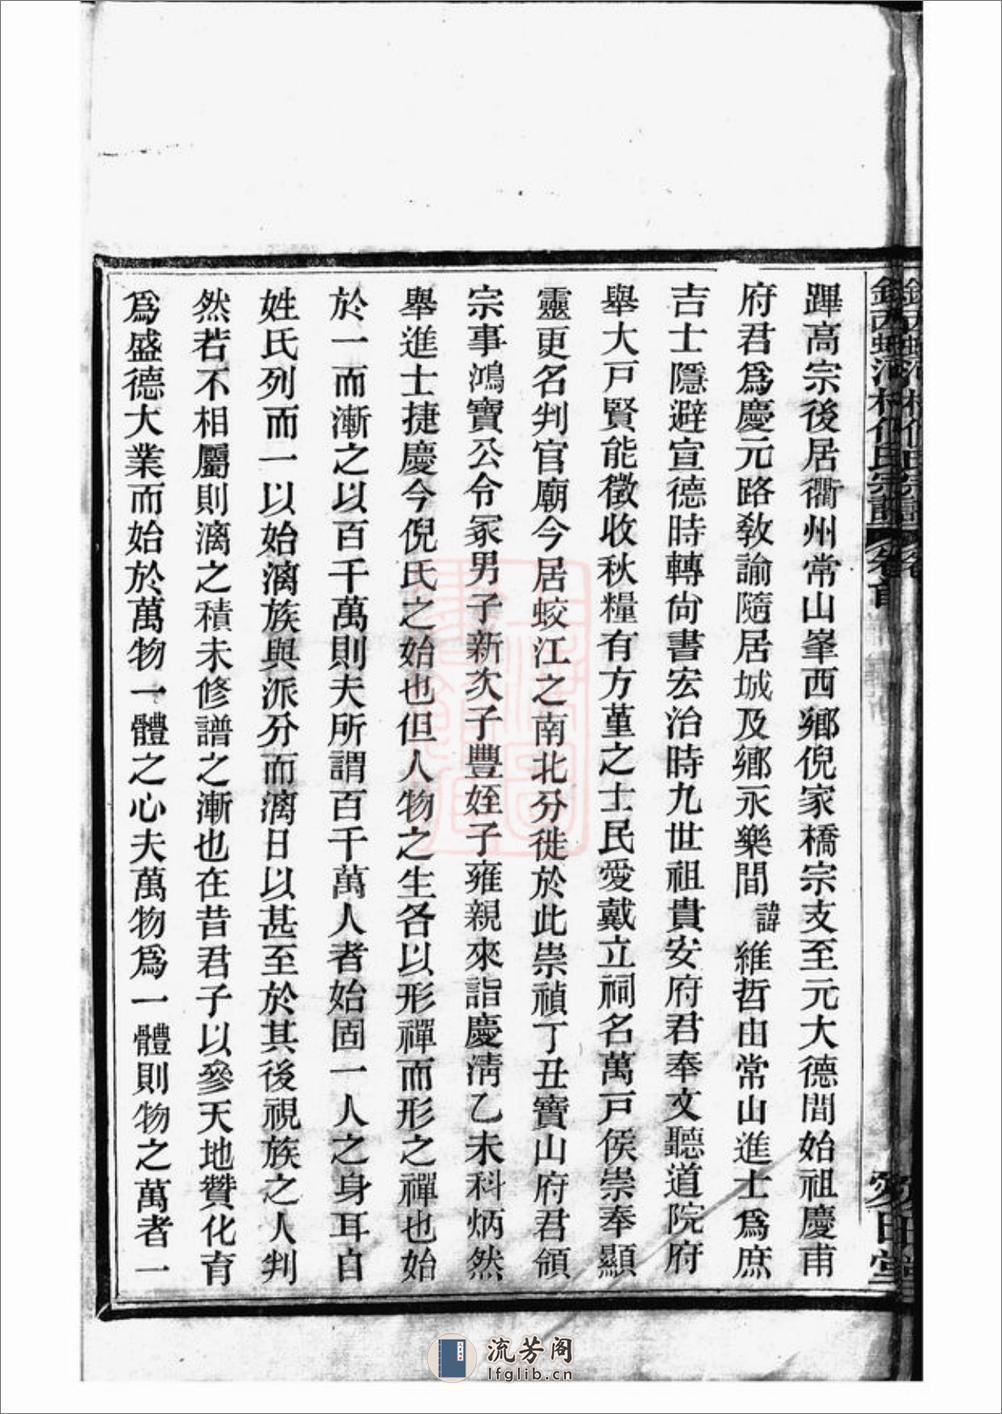 蹕高宗後居衢州常山峯西鄕倪家橋宗支至元大德間始祖慶甫
府君爲慶元路敎諭隨居城及鄕永樂間諱維哲由常山進士爲庶
吉士隱避宣德時轉尙書宏治時九世祖貴安府君奉文聽道院府
舉大戸賢能徵收秋糧有方堇之士民愛戴立祠名萬戸侯崇奉顯
靈更名判官廟今居蛟江之南北分徙於此崇禎丁丑寶山府君領
宗事鴻寶公令冢男子新次子豐姪子雍親來詣慶淸乙未科炳然
舉進士捷慶今倪氏之始也但人物之生各以形禪而形之禪也始
於一而漸之以百千萬則夫所謂百千萬人者始固一人之身耳自
姓氏列而一以始漓族與派分而漓日以甚至於其後視族之人判
然若不相屬則漓之積未修譜之漸也在昔君子以參天地贊化育
爲盛德大業而始於萬物一體之心夫萬物爲一體則物之萬者一
氏宗譜
卷首
堂
流芳阁
lfglib.cn